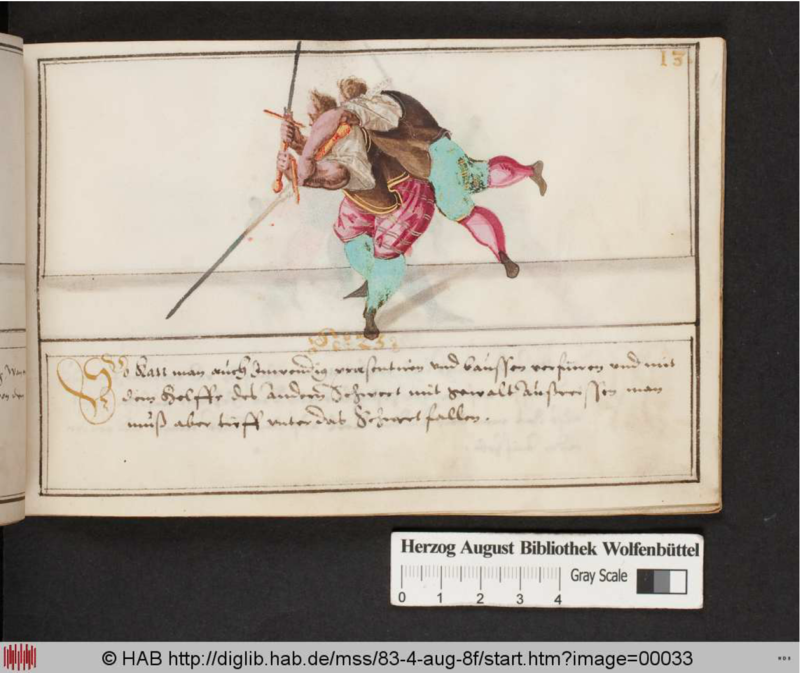 13
So kan man auch Inwendig præsentiren und daussen verfüren und mit
dem Helffe des Andern Schwert mit gewalt Ausreissen man
muß aber tieff unter das Schwert fallen.
Herzog August Bibliothek Wolfenbüttel
Gray Scale
0 1 2 3 4
© HAB http://diglib.hab.de/mss/83-4-aug-8f/start.htm?image=00033